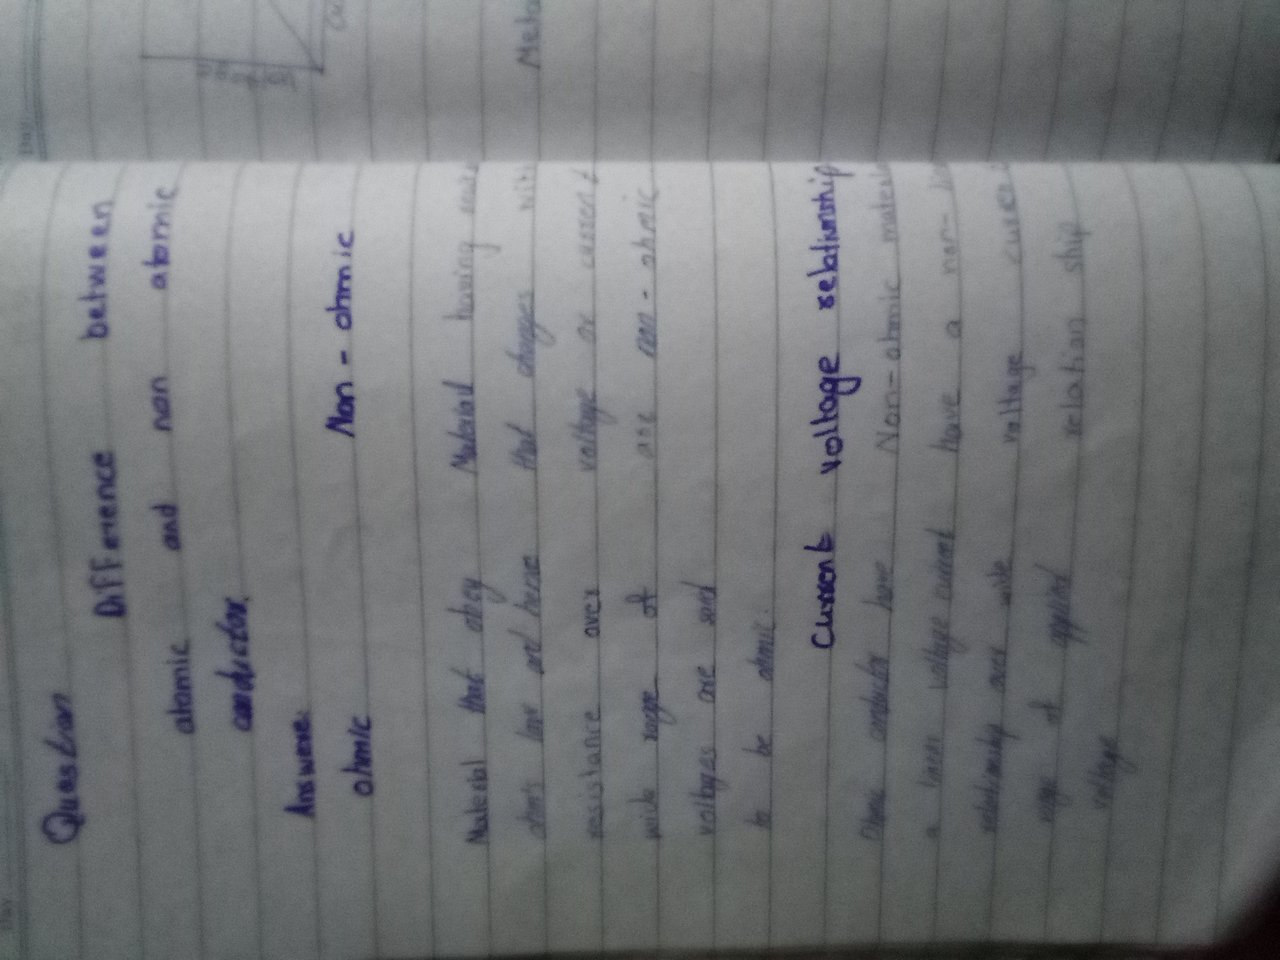 Question
Difference between
atomic and non atomic
conductor.
Answere:
ohmic Non - ohmic
Material that obey Material having
ohm's law and hence that changes with
resistance over voltage or current
wide range of are non - ohmic
voltages are said
to be ohmic.
Current voltage relationship
Ohmic conductor have Non-ohmic material
a linear voltage current have a non-
relationship over wide voltage current
range of applied relation ship
voltage
Meta